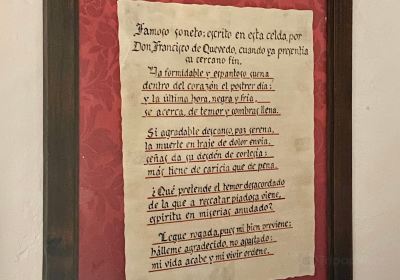 Famoso soneto: escrito en esta celda, por
Don Francisco de Quevedo, cuando ya presentia
su cercano fin.
Ya formidable y espantoso suena
dentro del corazón el postrer dia;
y la última hora, negra y fria,
se acerca, de temor y sombras llena.
Si agradable descanso, paz serena,
la muerte en traje de dolor envia,
señas da su desdén de cortesia;
más tiene de caricia que de pena.
¿Qué pretende el temor desacordado
de la que a rescatar piadosa viene,
espiritu en miserias anudado?
Llegue rogada, pues mi bien previene;
hálleme agradecido, no asustado;
mi vida acabe y mi vivir ordene.